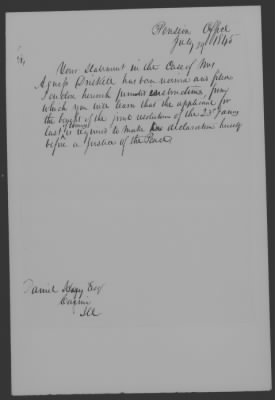 Pension Office
July 29th 1845
Sir,
Your Statement in the Case of Mrs
Agness has been received and filed.
I enclose herewith printed instructions, from
which you will learn that the applicant for
the benefit of the joint resolution of the 23d Jany
last is required to make her declaration merely
before a Justice of the Peace
Daniel Esqr
Ill